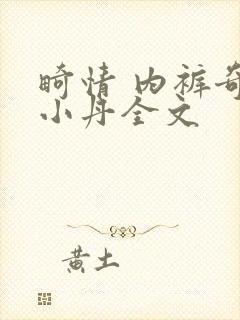 畸情 内裤奇
小丹全文
黄土